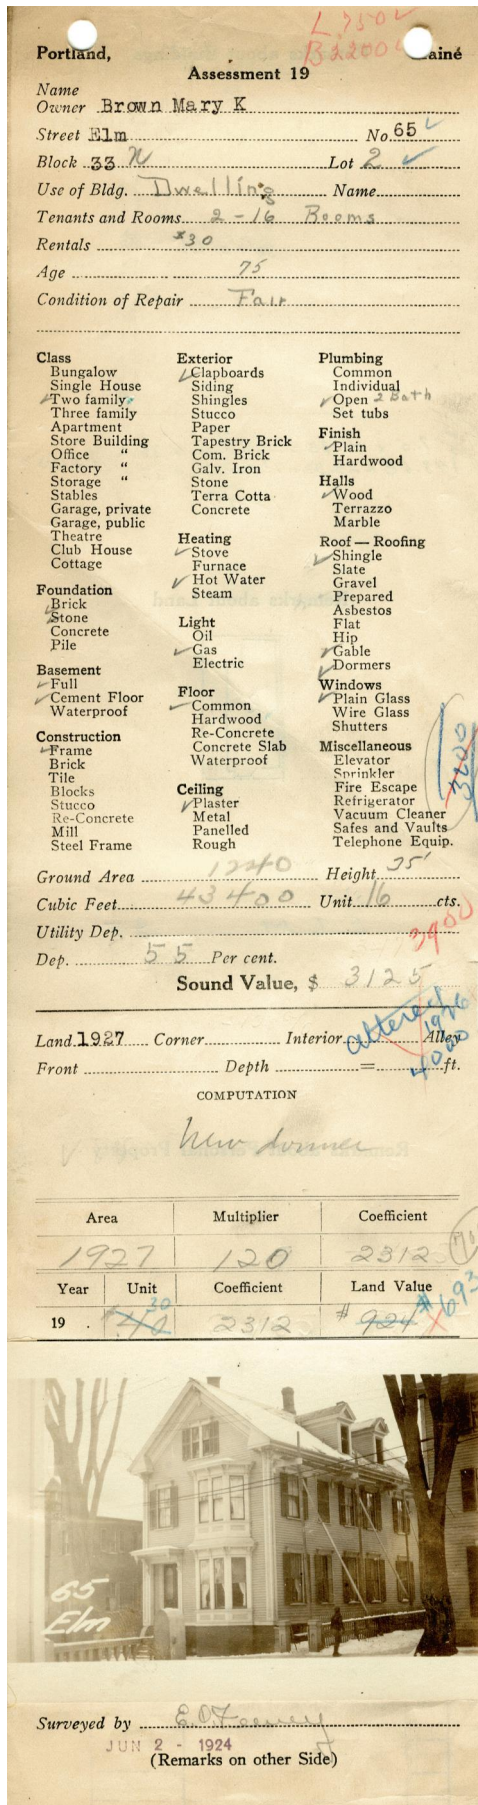 L 750
B 2200
Portland, Maine
Assessment 19
Name
Owner Brown Mary K
Street Elm No. 65
Block 33 N Lot 2
Use of Bldg. Dwelling Name
Tenants and Rooms 2 - 16 Rooms
Rentals $30
Age 75
Condition of Repair Fair
Class
Bungalow
Single House
✓Two family
Three family
Apartment
Store Building
Office "
Factory "
Storage "
Stables
Garage, private
Garage, public
Theatre
Club House
Cottage
Foundation
✓Brick
✓Stone
Concrete
Pile
Basement
✓Full
✓Cement Floor
Waterproof
Construction
✓Frame
Brick
Tile
Blocks
Stucco
Re-Concrete
Mill
Steel Frame
Exterior
✓Clapboards
Siding
Shingles
Stucco
Paper
Tapestry Brick
Com. Brick
Galv. Iron
Stone
Terra Cotta
Concrete
Heating
✓Stove
Furnace
✓Hot Water
Steam
Light
Oil
✓Gas
Electric
Floor
✓Common
Hardwood
Re-Concrete
Concrete Slab
Waterproof
Ceiling
✓Plaster
Metal
Panelled
Rough
Plumbing
Common
Individual
✓Open 2 Bath
Set tubs
Finish
✓Plain
Hardwood
Halls
✓Wood
Terrazzo
Marble
Roof — Roofing
✓Shingle
Slate
Gravel
Prepared
Asbestos
Flat
Hip
✓Gable
✓Dormers
Windows
✓Plain Glass
Wire Glass
Shutters
Miscellaneous
Elevator
Sprinkler
Fire Escape
Refrigerator
Vacuum Cleaner
Safes and Vaults
Telephone Equip.
Ground Area 1240 Height 35'
Cubic Feet 43400 Unit 16 cts.
Utility Dep. 3900
Dep. 55 Per cent.
Sound Value, $ 3125
altered 1926
4000
Land 1927 Corner Interior Alley
Front Depth = ft.
COMPUTATION
New dormer
Area Multiplier Coefficient
1927 120 2312
Year Unit Coefficient Land Value
20
19 . 40 2312 $ 924 $693
65
Elm
Surveyed by E. O. Feeney
JUN 2 - 1924
(Remarks on other Side)